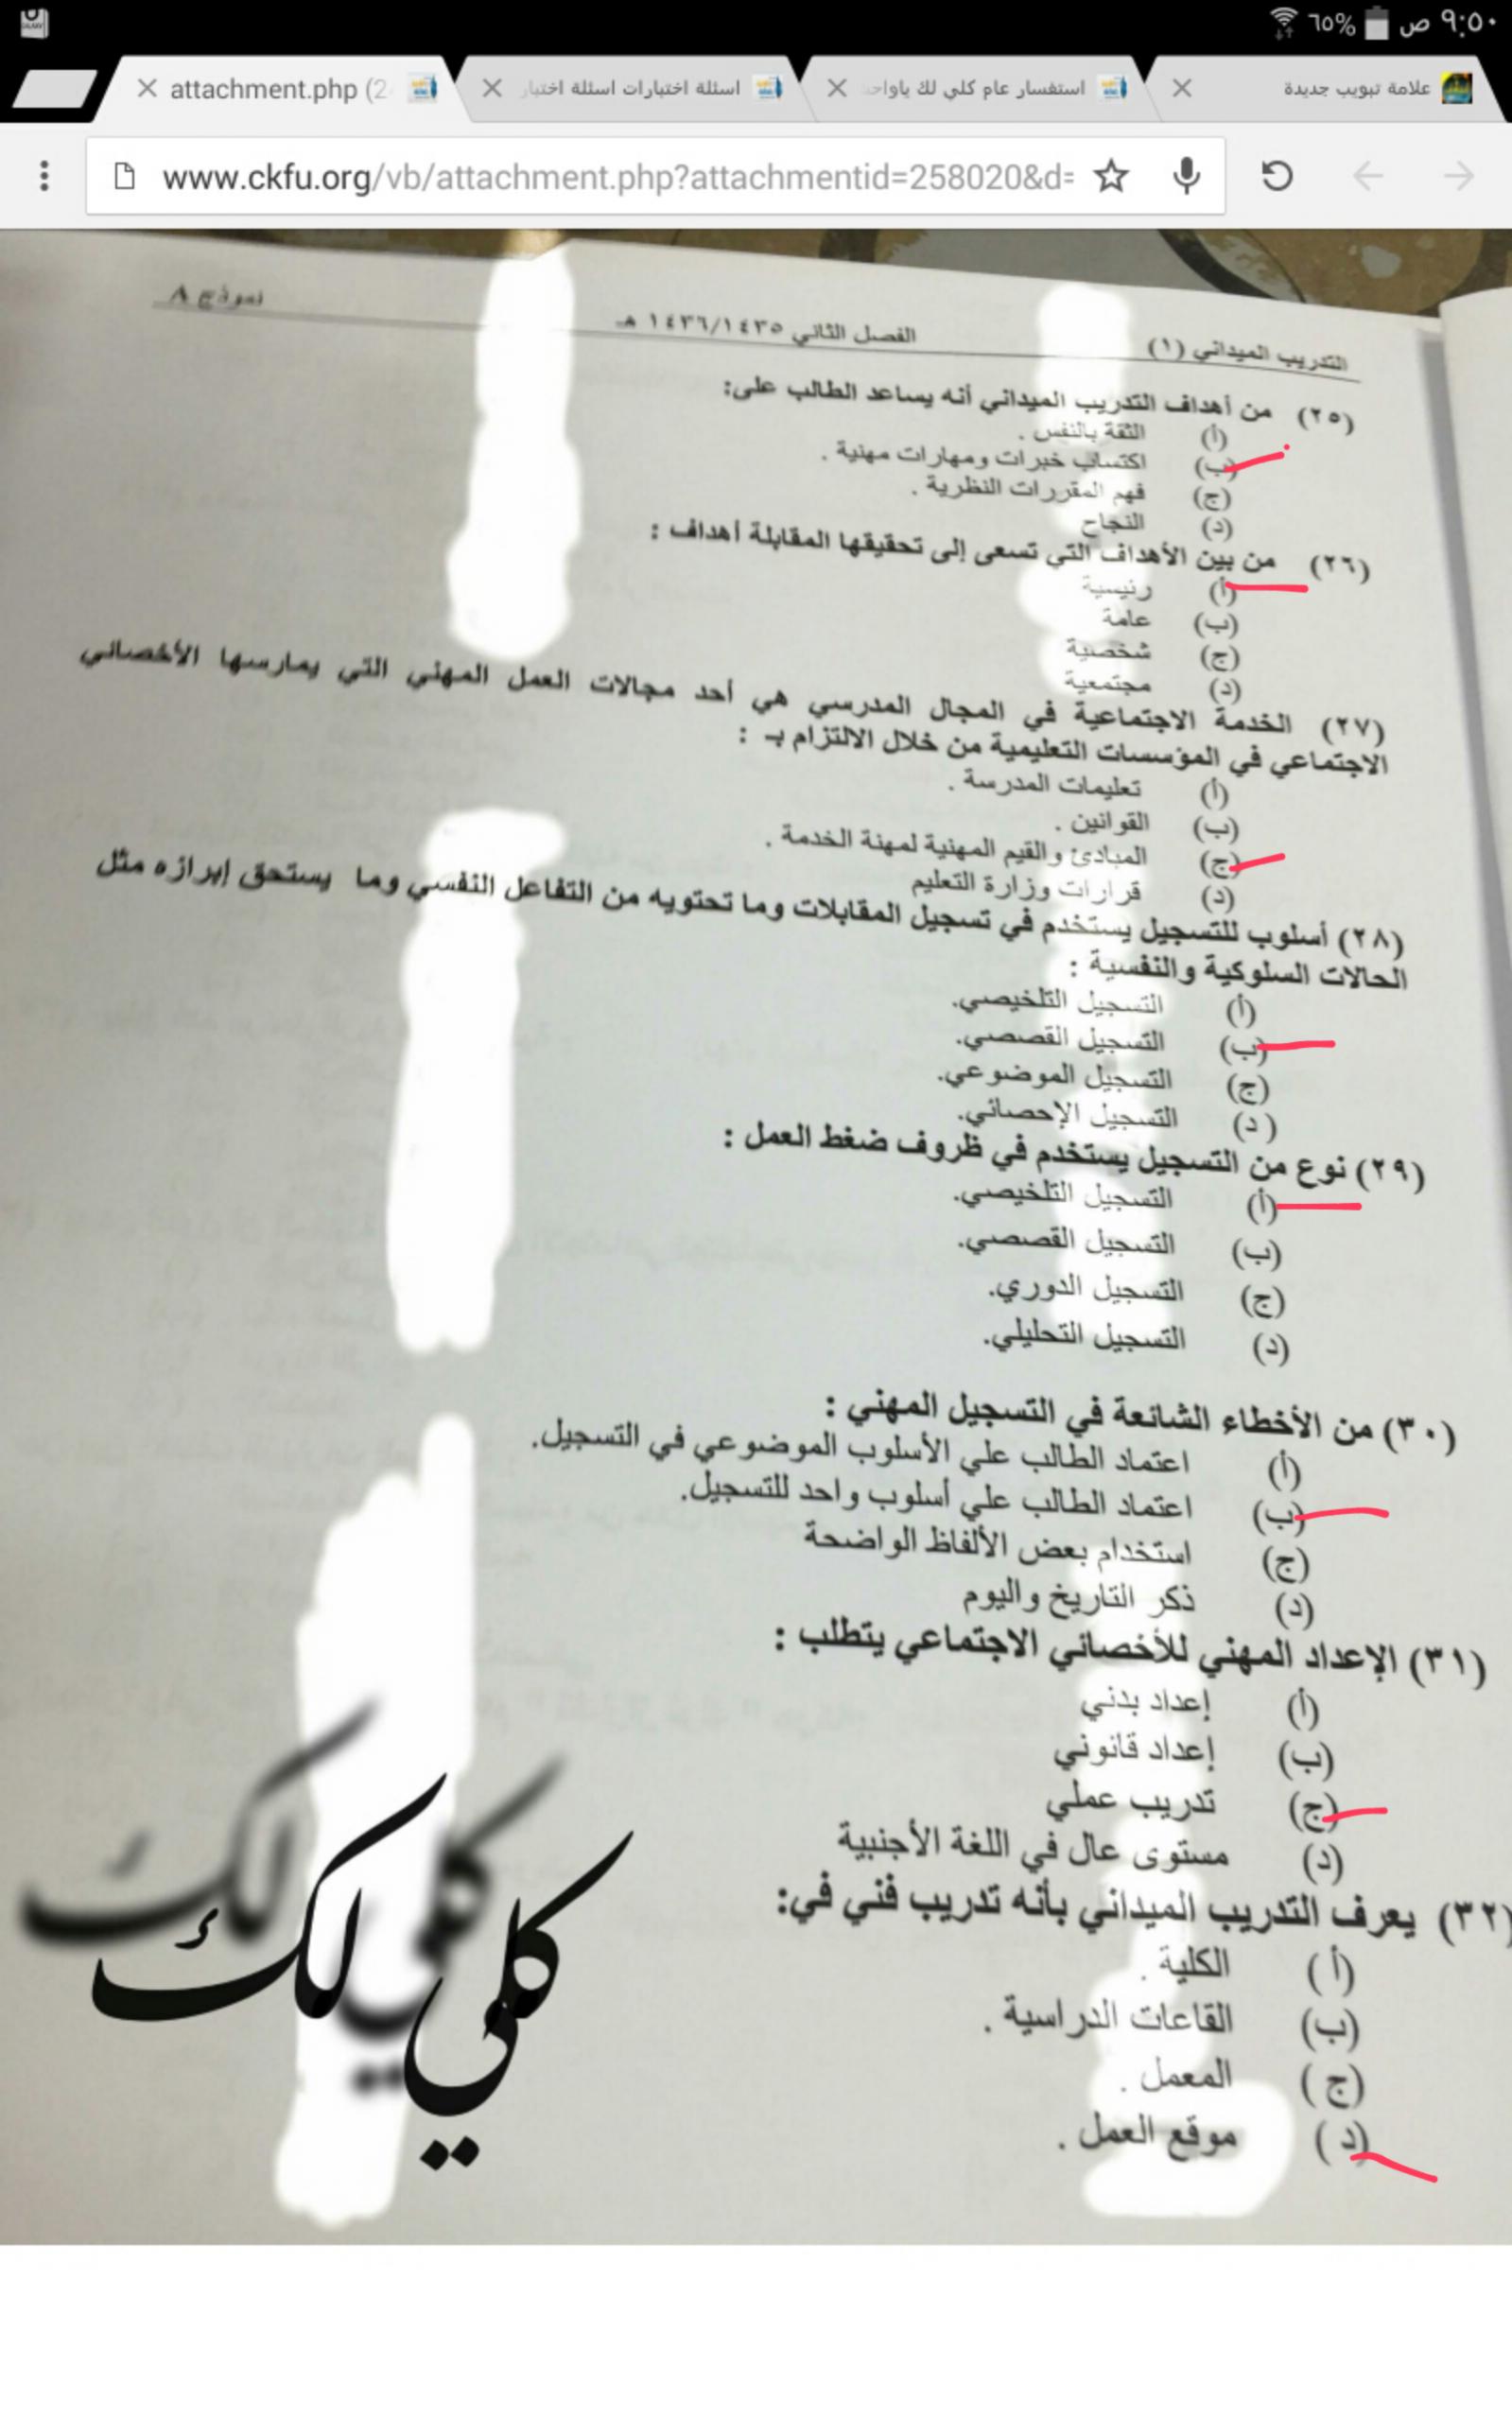 ٩:٥٠ ص ٦٥%
attachment.php (2
اسئلة اختبارات اسئلة اختبار
استفسار عام كلي لك ياواحد
علامة تبويب جديدة
www.ckfu.org/vb/attachment.php?attachmentid=258020&d=
التدريب الميداني (١) الفصل الثاني ١٤٣٦/١٤٣٥ هـ نموذج A
(٢٥) من أهداف التدريب الميداني أنه يساعد الطالب على:
(أ) الثقة بالنفس .
(ب) اكتساب خبرات ومهارات مهنية .
(ج) فهم المقررات النظرية .
(د) النجاح
(٢٦) من بين الأهداف التي تسعى إلى تحقيقها المقابلة أهداف :
(أ) رئيسية
(ب) عامة
(ج) شخصية
(د) مجتمعية
(٢٧) الخدمة الاجتماعية في المجال المدرسي هي أحد مجالات العمل المهني التي يمارسها الأخصائي
الاجتماعي في المؤسسات التعليمية من خلال الالتزام بـ :
(أ) تعليمات المدرسة .
(ب) القوانين .
(ج) المبادئ والقيم المهنية لمهنة الخدمة .
(د) قرارات وزارة التعليم
(٢٨) أسلوب للتسجيل يستخدم في تسجيل المقابلات وما تحتويه من التفاعل النفسي وما يستحق إبرازه مثل
الحالات السلوكية والنفسية :
(أ) التسجيل التلخيصي.
(ب) التسجيل القصصي.
(ج) التسجيل الموضوعي.
(د) التسجيل الإحصائي.
(٢٩) نوع من التسجيل يستخدم في ظروف ضغط العمل :
(أ) التسجيل التلخيصي.
(ب) التسجيل القصصي.
(ج) التسجيل الدوري.
(د) التسجيل التحليلي.
(٣٠) من الأخطاء الشائعة في التسجيل المهني :
(أ) اعتماد الطالب علي الأسلوب الموضوعي في التسجيل.
(ب) اعتماد الطالب علي أسلوب واحد للتسجيل.
(ج) استخدام بعض الألفاظ الواضحة
(د) ذكر التاريخ واليوم
(٣١) الإعداد المهني للأخصائي الاجتماعي يتطلب :
(أ) إعداد بدني
(ب) إعداد قانوني
(ج) تدريب عملي
(د) مستوى عال في اللغة الأجنبية
(٣٢) يعرف التدريب الميداني بأنه تدريب فني في:
(أ) الكلية .
(ب) القاعات الدراسية .
(ج) المعمل .
(د) موقع العمل .
كلي لك